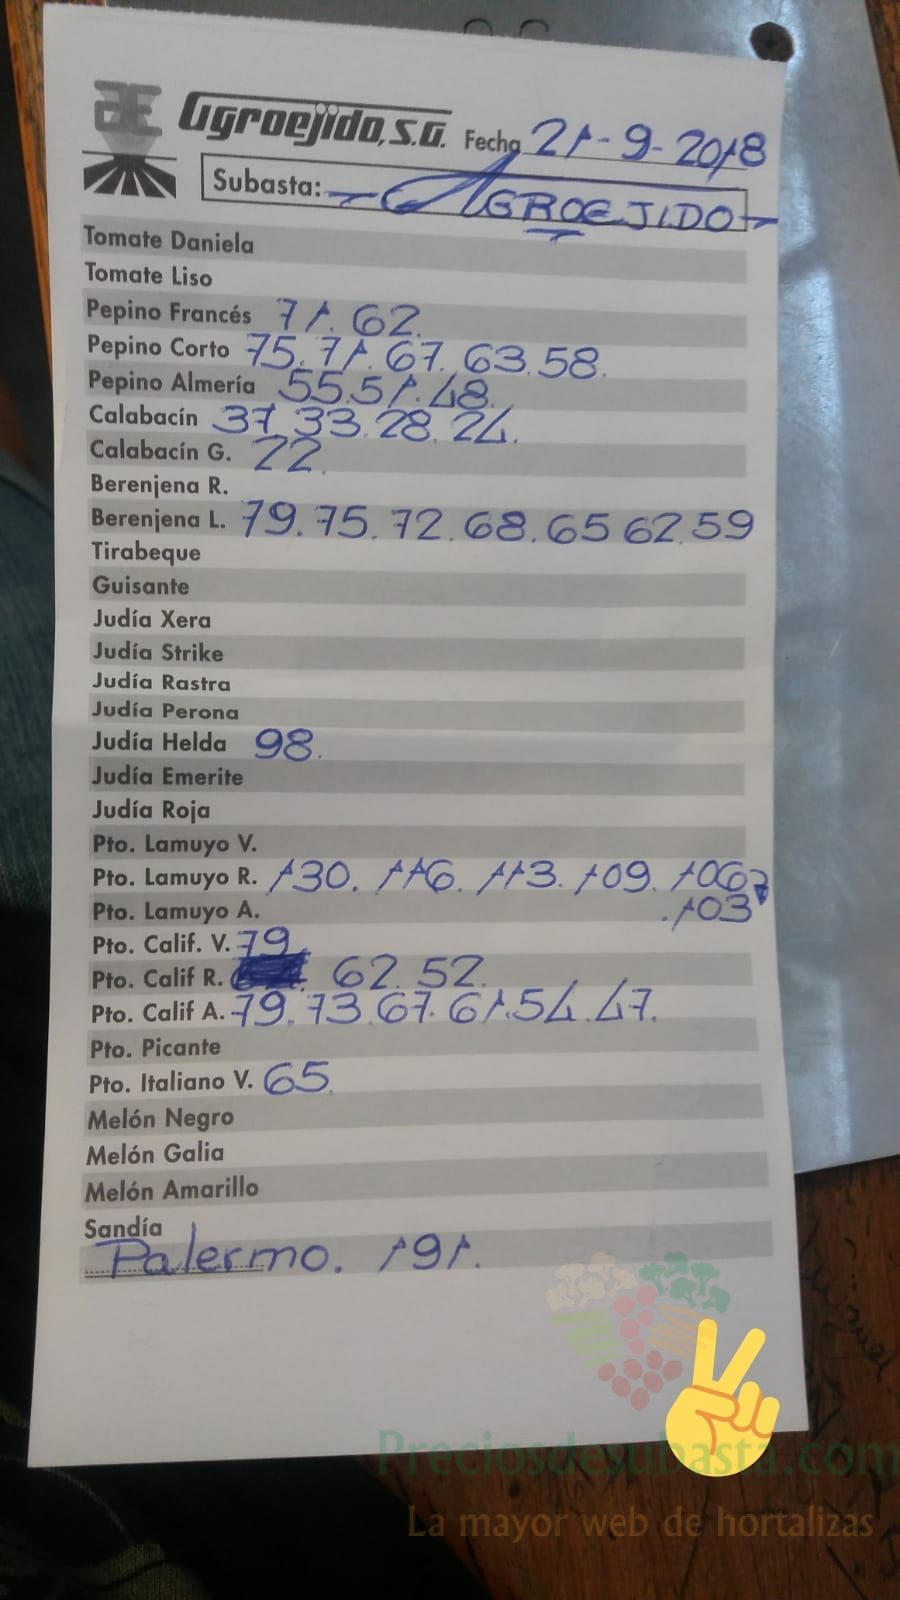 Agroejido, S.A. Fecha 21-9-2018
Subasta: - AGROEJIDO -
Tomate Daniela
Tomate Liso
Pepino Francés 71. 62.
Pepino Corto 75. 71. 67. 63. 58.
Pepino Almería 55. 51. 48.
Calabacín 37. 33. 28. 24.
Calabacín G. 22.
Berenjena R.
Berenjena L. 79. 75. 72. 68. 65 62. 59
Tirabeque
Guisante
Judía Xera
Judía Strike
Judía Rastra
Judía Perona
Judía Helda 98.
Judía Emerite
Judía Roja
Pto. Lamuyo V.
Pto. Lamuyo R. 130. 116. 113. 109. 106
Pto. Lamuyo A. . 103
Pto. Calif. V. 79.
Pto. Calif R. 62. 52.
Pto. Calif A. 79. 73. 67. 61. 54. 47.
Pto. Picante
Pto. Italiano V. 65.
Melón Negro
Melón Galia
Melón Amarillo
Sandía
Palermo. 191.
Preciosdesubasta.com
La mayor web de hortalizas